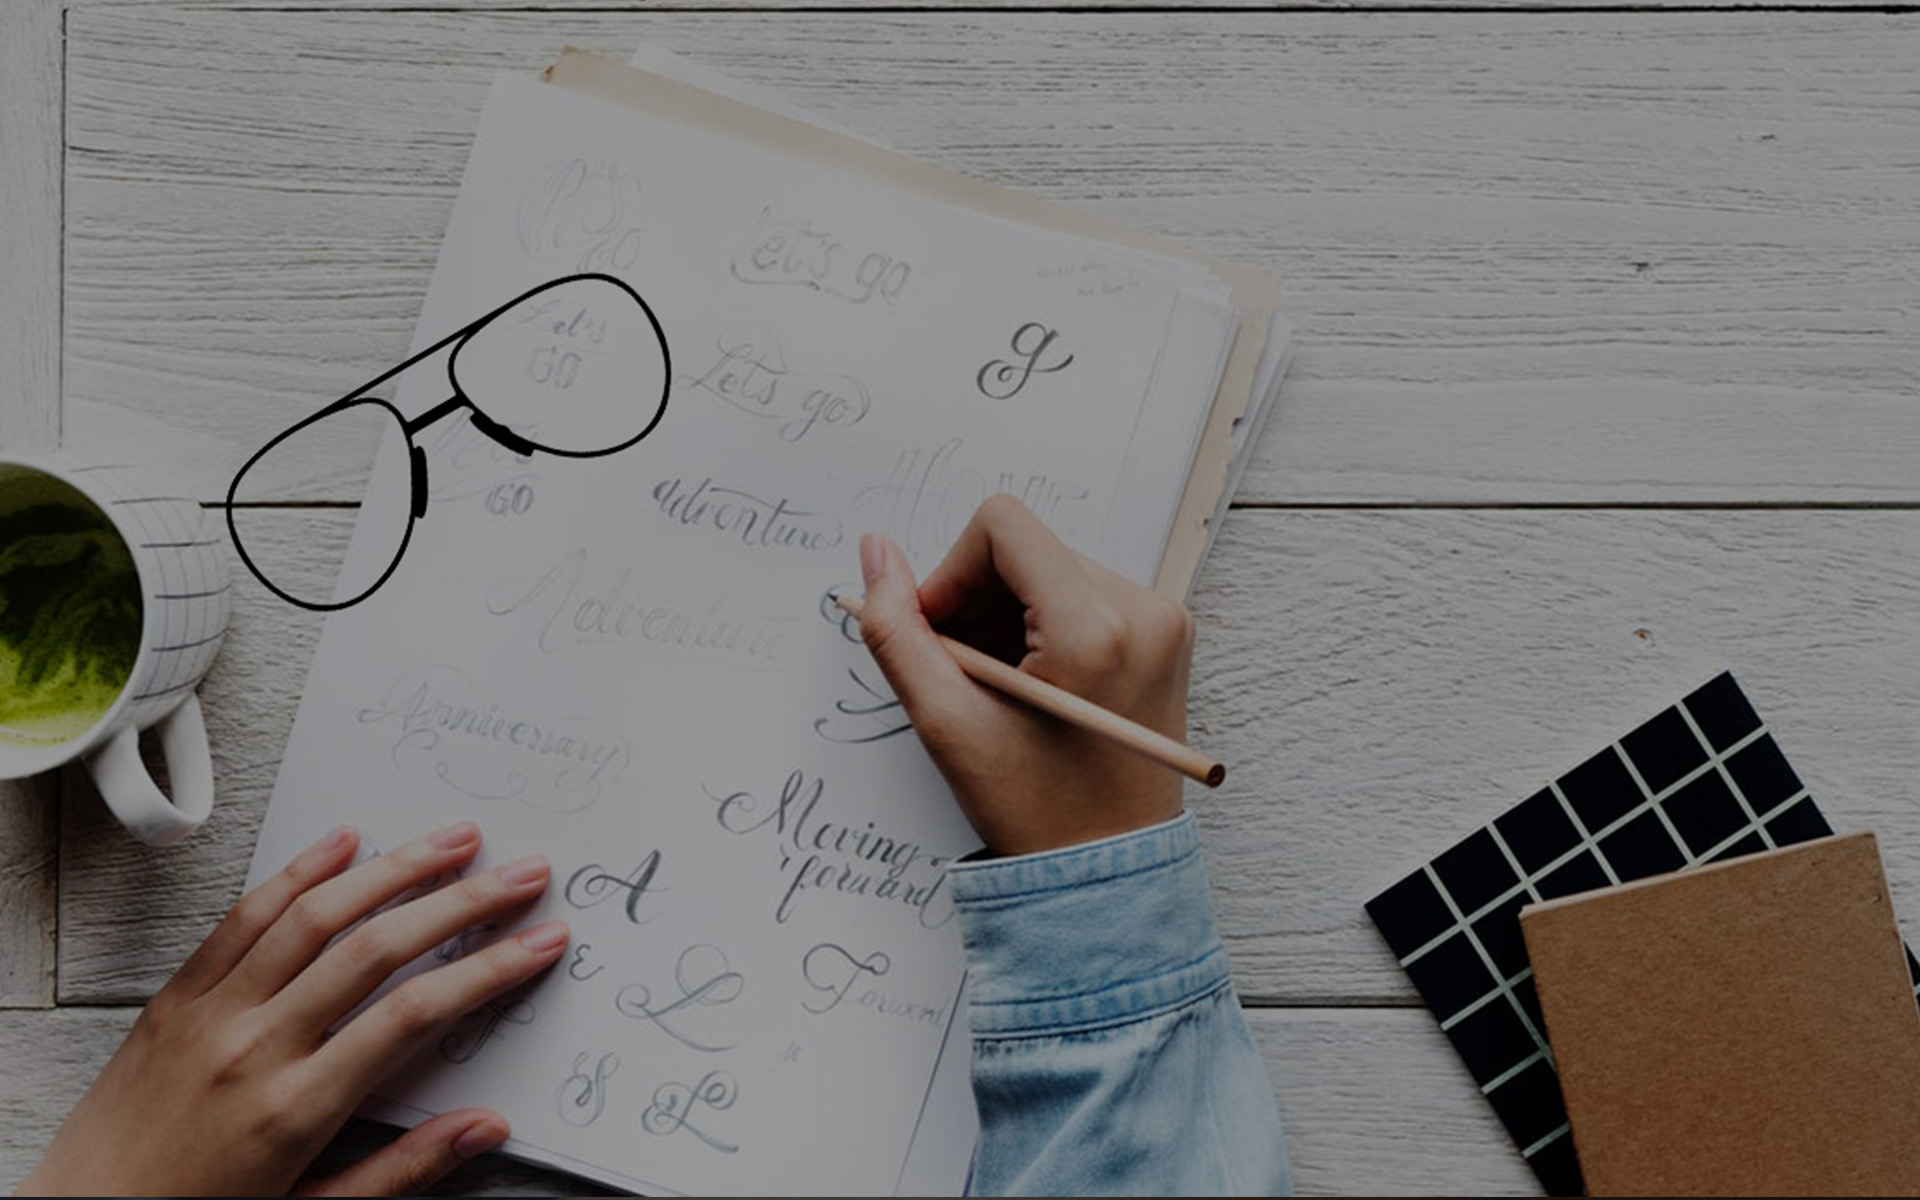 Let's go
g
Let's
GO
Let's go
GO
adventure
HOME
Adventure
Anniversary
Moving
forward
A
E
L
Forward
F
S
L